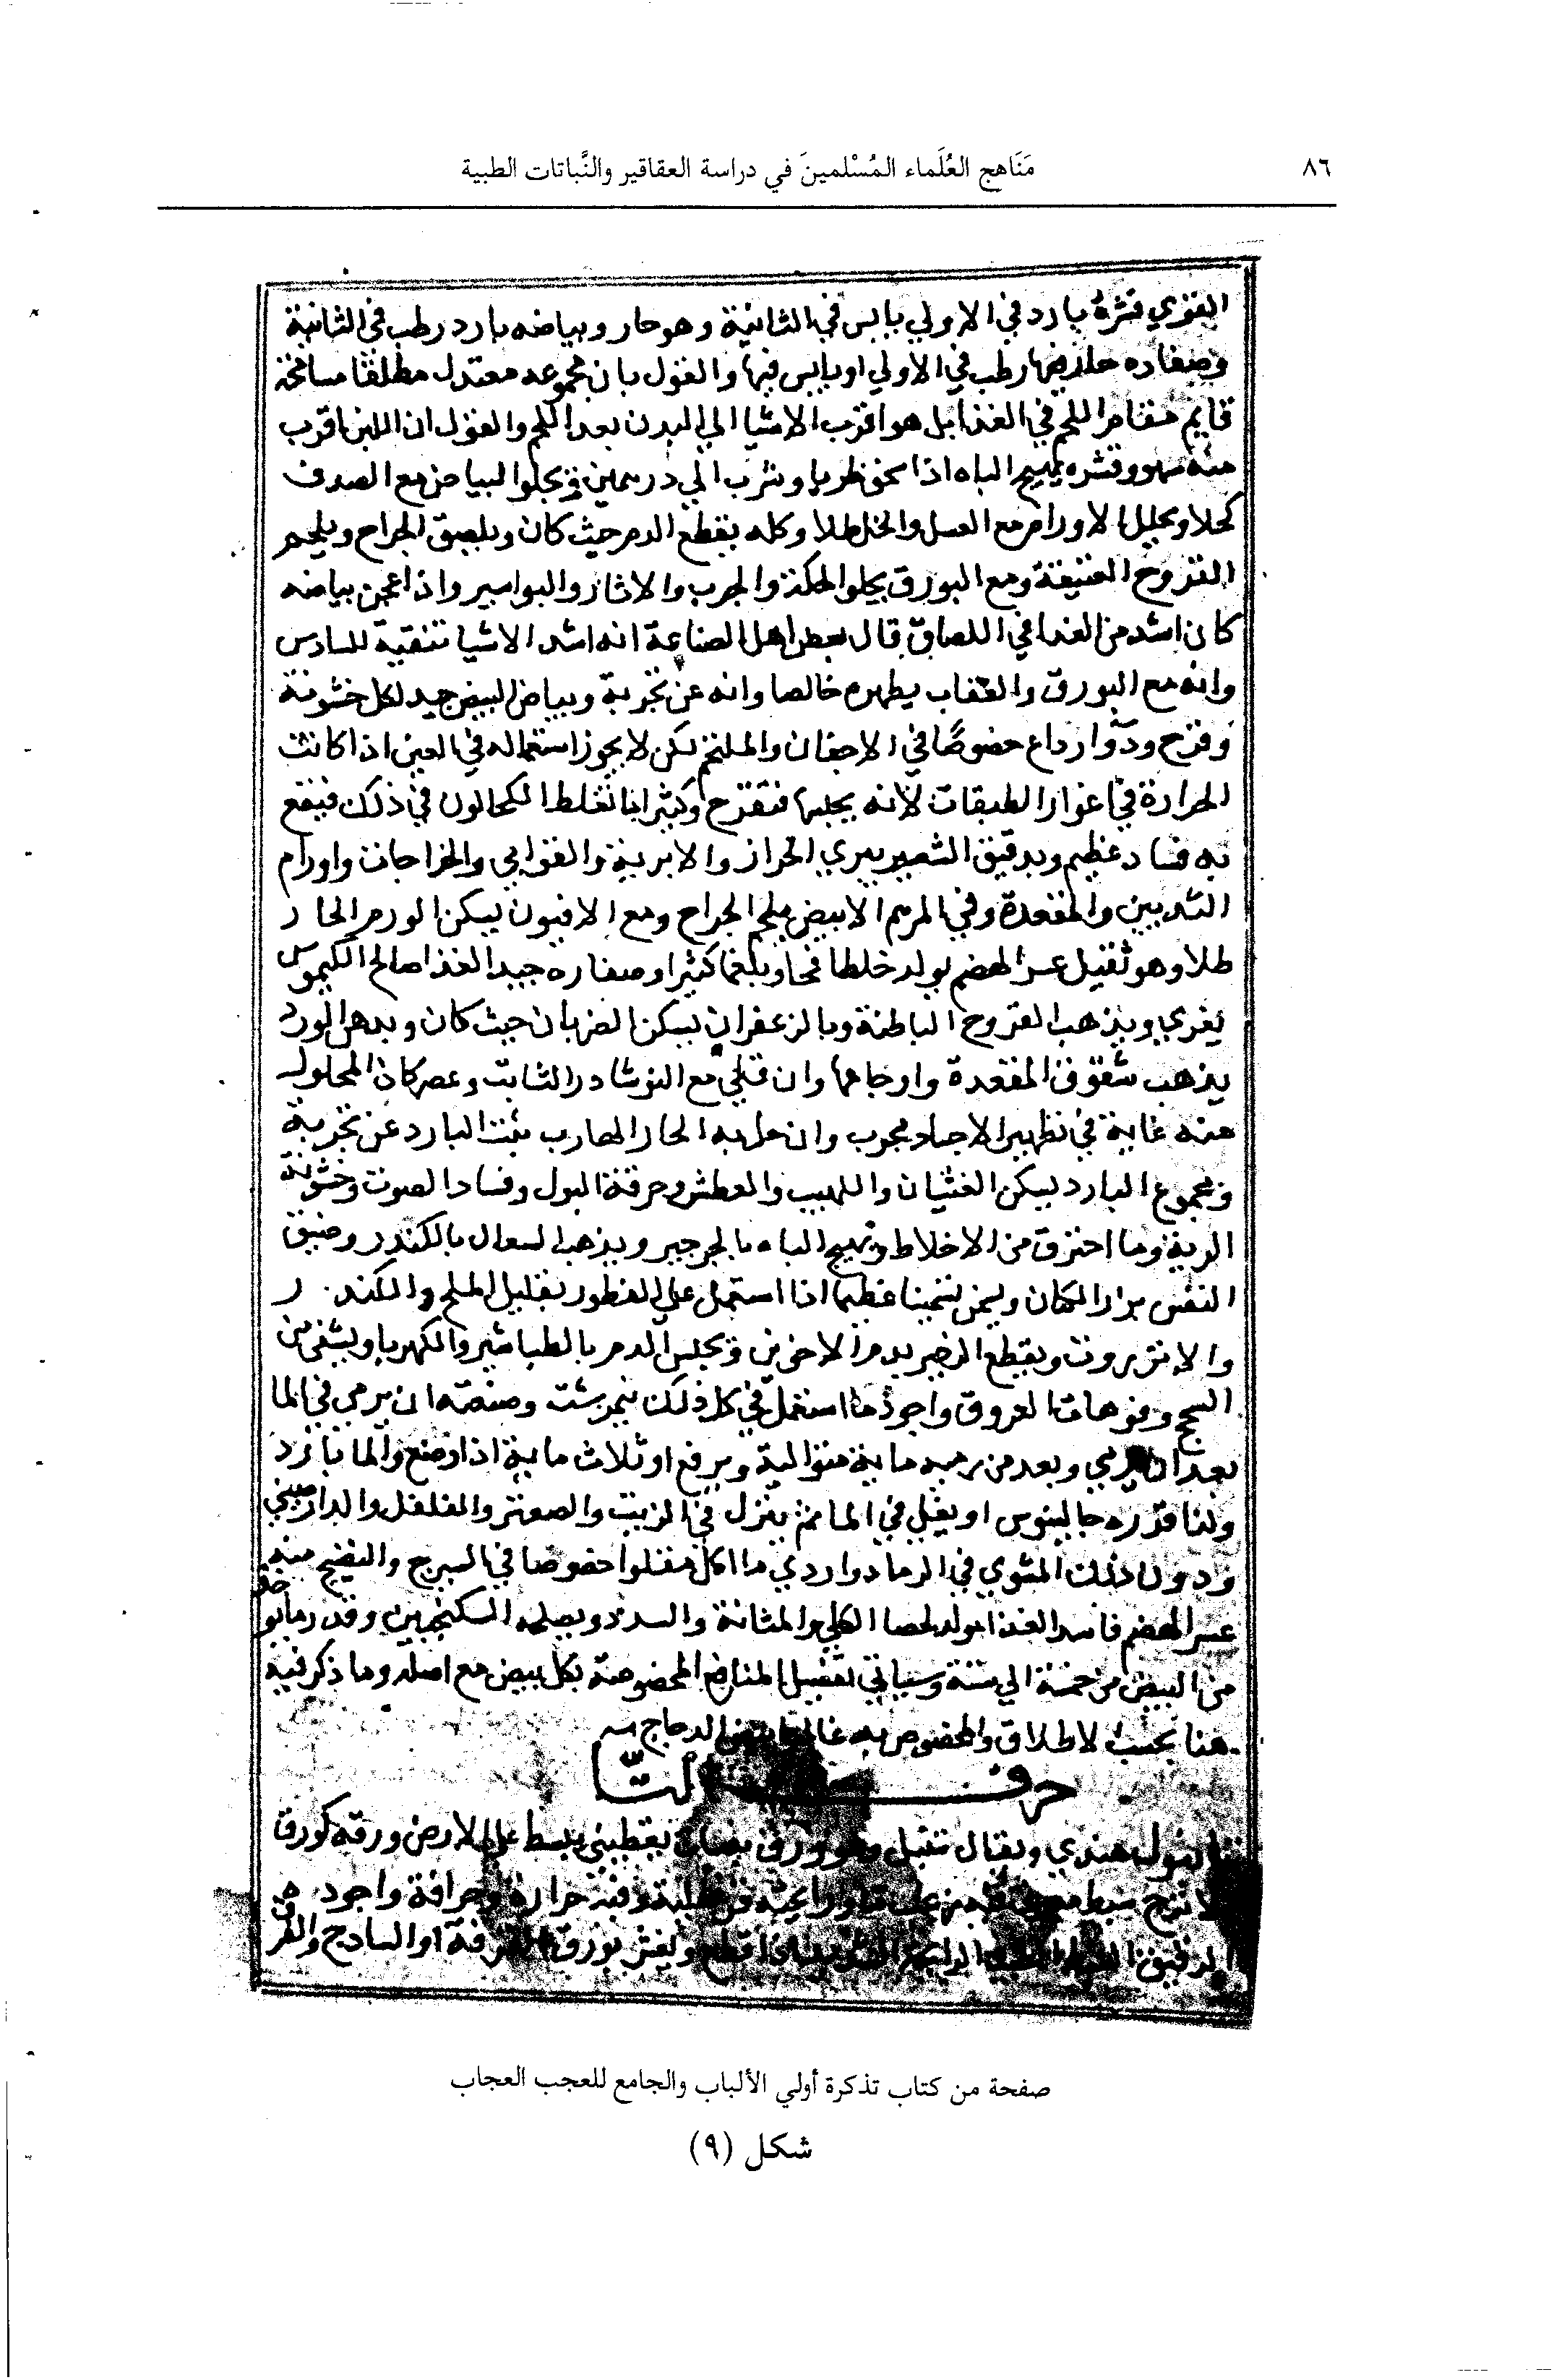 ٨٦ مَنَاهج العُلَماء المُسْلمينَ في دراسة العقاقير والنَّباتات الطبية
القوي قشره بارد في الاولي يابس في الثانية وهو حار وبياضه بارد رطب في الثانية
وصفاده حار رطب في الاولي او يابس فيها والقول بان مجموعه معتدل مطلقا مسامحة
قايم مقام اللحم في الغذا بل هو اقرب الاشيا الي البدن بعد اللحم والقول ان اللبن اقرب
منه سهو وقشره يهيج الباه اذا سحق طريا وشرب الي درهمين ويجلوا البياض مع الصدف
كحلا ويحلل الاورام مع العسل والخل طلا وكله يقطع الدم حيث كان ويلصق الجراح ويلحم
القروح العتيقة ومع البورق يجلوا الحكة والجرب والاثار والبواسير واذا عجن بياضه
كان اشد من الغرا في اللصاق قال بعض اهل الصناعة انه اشد الاشيا تنقية للسادس
وانه مع البورق والعقاب يطهره خالصا وانه عن تجربة وبياض البيض جيد لكل خشونة
وقرح ودوا رداع خصوصًا في الاجفان والملتحم لكن لا يجوز استعماله في العين اذا كانت
الحرارة في اغوار الطبقات لانه يجلبها فتقرح وكثيرا ما تغلط الكحالون في ذلك فيقع
به فساد عظيم وبدقيق الشعير يبري الحزاز والابرية والقوابي والخراجات واورام
الثديين والمقعدة وفي المرهم الابيض يلحم الجراح ومع الافيون يسكن الورم الحار
طلا وهو ثقيل عسر الهضم يولد خلطا فجا وبلغما كثيرا وصفاره جيد الغذا صالح الكيموس
يغري ويذهب القروح الباطنة وبالزعفران يسكن الضربان حيث كان وبدهن الورد
يذهب شقوق المقعدة واوجاعها وان قلي مع النوشادر الثابت وعصر كان المحلول
منه غاية في تطهير الاجساد مجرب وان حل به الحار الهارب ثبت البارد عن تجربة
ومجموع البارد يسكن الغثيان واللهيب والعطش وحرقة البول وفساد الصوت وخشونة
الرية وما احترق من الاخلاط ويهيج الباه بالجرجير ويذهب السعال بالكندر وضيق
النفس ببزر الكتان ويسمن تسمينا عظيما اذا استعمل علي الفطور بقليل الملح والكندر
والانزروت ويقطع الزحير بدم الاخوين ويحبس الدم بالطباشير والكهربا ويشفي من
السحج وفوهات العروق واجود ما استعمل في كل ذلك نيمرشت وصنعته ان يرمي في الما
بعد ان يرمي ويعد من رميه ماية متوالية ويرفع او ثلاث ماية اذا وضع والما بارد
وكذا قدره جالينوس او يغلي في الما ثم ينزل في الزيت والصعتر والفلفل والدارصيني
ودون ذلك المشوي في الرماد واردي ما اكل مقلوا خصوصا في السيرج والنضيج منه
عسر الهضم فاسد الغذا مولد لحصا الكلي والمثانة والسدد ويصلحه السكنجبين وقدر ما يو خذ
من البيض من خمسة الي ستة وسياتي تفصيل المنافع المخصوصة بكل بيض مع اصله وما ذكر فيه
هنا بحسب الاطلاق والمخصوص به غالبا بيض الدجاج
حرف التّا
تانبول هندي ويقال تنبل وهو ورق يقطيني يبسط علي الارض ورقه كورق
الاترج سبط ورايحته وفيه حرارة وحرافة واجوده
الدقيق الرايحة ويغش بورق القرفة او السادج والفرق
صفحة من كتاب تذكرة أولي الألباب والجامع للعجب العجاب
شكل (٩)